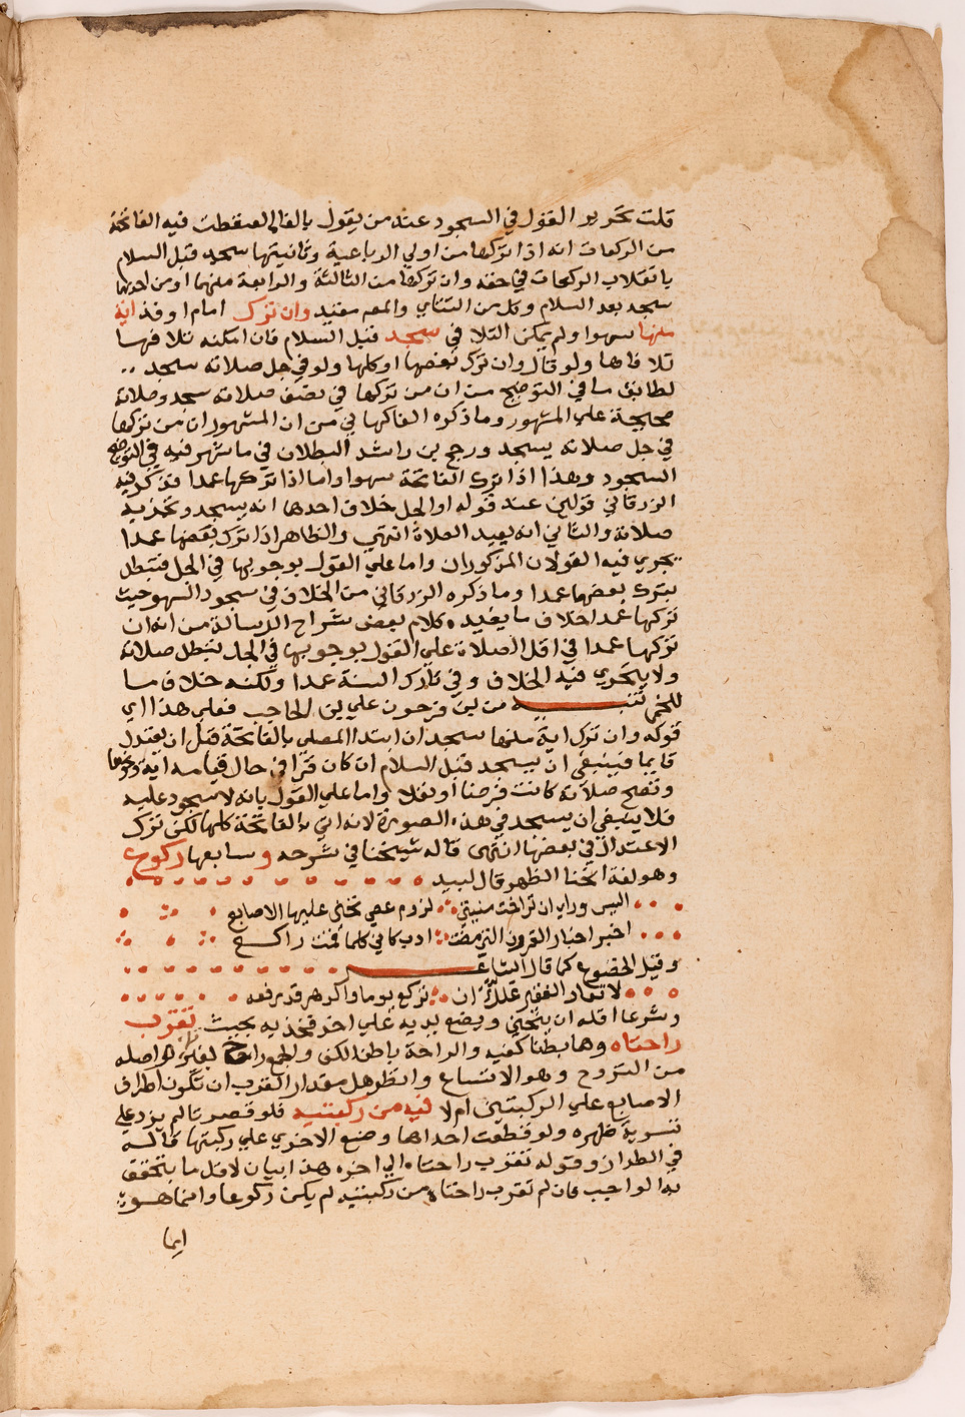 قلت تحرير القول في السجود عند من يقول بالغا لمن سقطت فيه الفاتحة
من الركعات انه اذا تركها من اولي الرباعية وثانيتها سجد قبل السلام
بانقلاب الركعات في حقه وان تركها من الثالثة والرابعة منهما او من احديهما
سجد بعد السلام وكل من التتاي والمعه مفيد وان ترك امام او فذ اية
منها سهوا ولم يمكن التلا في سجد قبل السلام فان امكنه تلافيها
تلافاها ولو قال وان ترك بعضها او كلها ولو في جل صلاته سجد
لطابق ما في التوضيح من ان من تركها في نصف صلاته سجد وصلاته
صحيحة علي المشهور وما ذكره الفاكهاني من ان المشهور ان من تركها
في جل صلاته يسجد ورجح بن راشد البطلان في ما شهر فيه في التوضيح
السجود وهذا اذا ترك الفاتحة سهوا واما اذا تركها عمدا فذكر فيه
الزرقاني قولين عند قوله او الجل خلاف احدها انه يسجد وتجزيه
صلاته والثاني انه يعيد الصلاة انتهي والظاهر اذا ترك بعضها عمدا
يجري فيه القولان المذكوران واما علي القول بوجوبها في الجل فتبطل
بترك بعضها عمدا وما ذكره الزرقاني من الخلاف في سجود السهو حيث
تركها عمدا خلاف ما يفيده كلام بعض شراح الرسالة من انه ان
تركها عمدا في اقل الصلاة علي القول بوجوبها في الجل تبطل صلاته
ولا يجري فيه الخلاف وفي تارك السنة عمدا ولكنه خلاف ما
للخمي تنبيه من بن فرحون علي بن الحاجب فعلي هذا اي
قوله وان ترك اية منها سجد ان ابتدا المصلي بالفاتحة قبل ان يعتدل
قايما فينبغي ان يسجد قبل السلام ان كان قرا في حال قيامه اية ونحوها
وتصح صلاته كانت فرضا او نفلا واما علي القول بانه لا سجود عليه
فلا ينبغي ان يسجد في هذه الصورة لانه اتي بالفاتحة كلها لكن ترك
الاعتدال في بعضها انتهى قاله شيخنا في شرحه وسابعها ركوع
وهو لغة انحنا الظهر قال لبيد
اليس وراي ان تراخت منيتي لزوم عصي تحني عليها الاصابع
اخبر اخبار القرون التي مضت ادب كاني كلما قمت راكع
وقيل الخضوع كما قال الشاعر
لا تعاد الفقير علك ان تركع يوما والدهر قد رفعه
وشرعا اقله ان ينحني ويضع يديه علي اخر فخذيه بحيث تقرب
راحتاه وهما بطنا كفيه والراحة باطن الكف والجمع راح بغير واصله
من التروح وهو الاتساع وانظر هل مقدار القرب ان تكون اطراف
الاصابع علي الركبتين ام لا فيه من ركبتيه فلو قصرتا لم يزد علي
تسوية ظهره ولو قطعت احداهما وضع الاخري علي ركبتها قاله
في الطراز وقوله تقرب راحتاه الي اخره هذا بيان لاقل ما يتحقق
به الواجب فان لم تقرب راحتاه من ركبتيه لم يكن ركوعا وانما هو
ايما